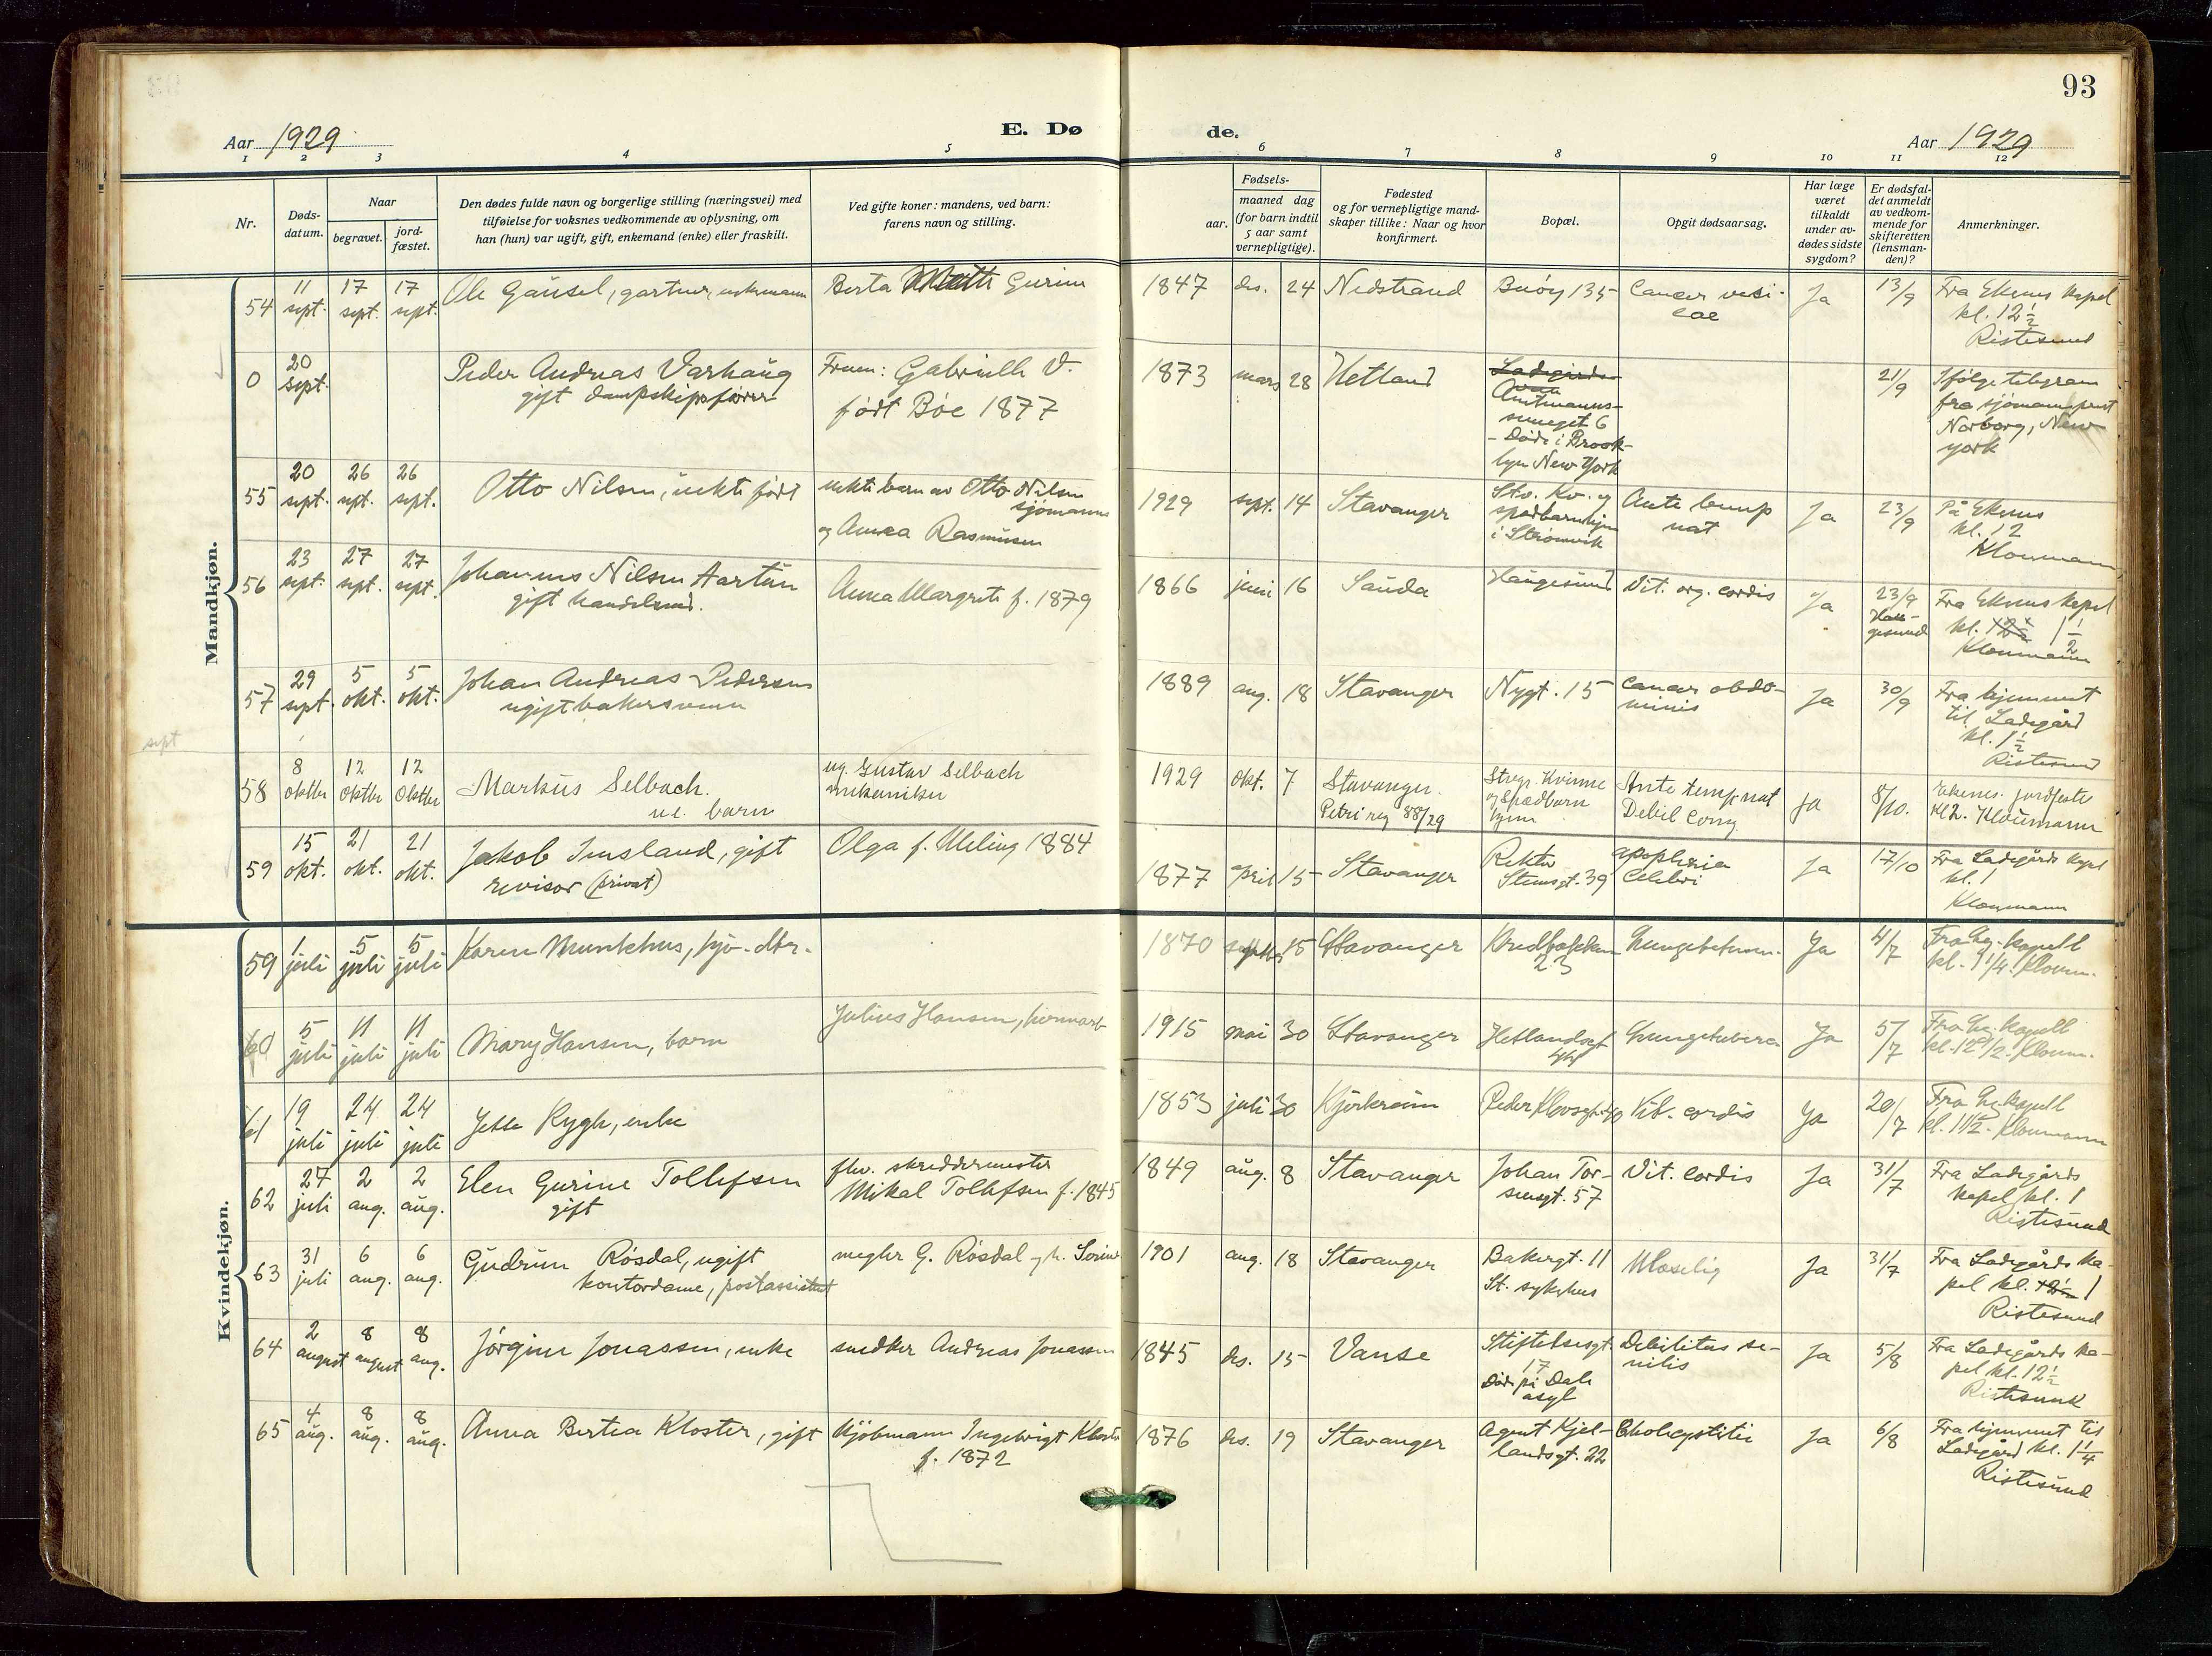 93
Aar 1929
E. Dø
de.
Aar 1929
1 2 3 4 5 6 7 8 9 10 11 12
Nr.
Døds-
datum.
Naar
begravet.
jord-
fæstet.
Den dødes fulde navn og borgerlige stilling (næringsvei) med
tilføielse for voksnes vedkommende av oplysning, om
han (hun) var ugift, gift, enkemand (enke) eller fraskilt.
Ved gifte koner: mandens, ved barn:
farens navn og stilling.
Fødsels-
aar.
maaned dag
(for barn indtil
5 aar samt
vernepligtige).
Fødested
og for vernepligtige mand-
skaper tillike: Naar og hvor
konfirmert.
Bopæl.
Opgit dødsaarsag.
Har læge
været
tilkaldt
under av-
dødes sidste
sygdom?
Er dødsfal-
det anmeldt
av vedkom-
mende for
skifteretten
(lensman-
den)?
Anmerkninger.
Mandkjøn.
54
11 sept.
17 sept.
17 sept.
Ole Gausel, gartner, enkemann
Berta Gurine
1847 des. 24
Nedstrand
Buøy 135
Cancer vesi-
cae
Ja
13/9
Fra Ekenes kapel
kl. 12 1/2
Ristesund
0
20 sept.
Peder Andreas Varhaug
gift dampskipsfører
Fruen: Gabrielle V.
født Bøe 1877
1873 mars 28
Hetland
Amtmanns-
smuget 6
- Døde i Brook-
lyn New York
21/9
Ifølge telegram
fra sjømannsprest
Norborg, New
York
55
20 sept.
26 sept.
26 sept.
Otto Nilsen, uekte født
uekte barn av Otto Nilsen
sjømann
og Anna Rasmussen
1929 sept. 14
Stavanger
Stv. Kv. og
spedbarnhjem
i Strømvik
Ante temp
nat
Ja
23/9
På Ekenes
kl. 12
Kloumann
56
23 sept.
27 sept.
27 sept.
Johannes Nilsen Aartun
gift handelsmd.
Anna Margrete f. 1879
1866 juni 16
Sauda
Haugesund
Vit. org. cordis
Ja
23/9
Hau-
gesund
Fra Ekenes kapel
kl. 12 1/2 1 1/2
Kloumann
57
29 sept.
5 okt.
5 okt.
Johan Andreas Pedersen
ugift bakersvenn
1889 aug. 18
Stavanger
Nygt. 15
Cancer abdo-
minis
Ja
30/9
Fra hjemmet
til Ladegård
kl. 1 1/2
Ristesund
sept
58
8 oktbr
12 oktbr
12 oktbr
Markus Selbach.
ue. barn
ug. Gustav Selbach
mekaniker
1929 okt. 7
Stavanger.
Petri reg 88/29
Stvgr. Kvinne
og Spædbarn
hjem
Ante temp nat
Debil cong
Ja
8/10.
Ekenes. jordfeste
Kl 2. Kloumann
59
15 okt.
21 okt.
21 okt.
Jakob Imsland, gift
revisor (privat)
Olga f. Meling 1884
1877 april 15
Stavanger
Rektor
Steensgt. 39
apoplexia
Celebri
Ja
17/10
Fra Ladegårds kapel
kl. 1
Kloumann
Kvindekjøn.
59
1 juli
5 juli
5 juli
Karen Munkehus,
1870 septbr. 15
Stavanger
Bredbakken
23
Lungebetennn.
Ja
4/7
Fra Lg. kapell
kl. 1 1/4. Kloum.
60
5 juli
11 juli
11 juli
Mary Hansen, barn
Julius Hansen,
1915 mai 30
Stavanger
Hetlandsgt
44
Lungetuberc
Ja
5/7
Fra Lg. kapell
kl. 12 1/2. Kloum.
61
19 juli
24 juli
24 juli
Jette Rygh, enke
1853 juli 30
Bjerkreim
Peder Klowsgt. 40
Vit. cordis
Ja
20/7
Fra Lg kapell
kl. 11 1/2. Kloumann
62
27 juli
2 aug.
2 aug.
Elen Gurine Tollefsen
gift
fhv. skreddermester
Mikal Tollefsen f. 1845
1849 aug. 8
Stavanger
Johan Tor-
sensgt. 57
Vit. cordis
Ja
31/7
Fra Ladegårds
kapel kl. 1
Ristesund
63
31 juli
6 aug.
6 aug.
Gudrun Røsdal, ugift
kontordame, postassistent
megler G. Røsdal og h. Sørine
1901 aug. 18
Stavanger
Bakergt. 11
St. sykehus
Uloselig
Ja
31/7
Fra Ladegårds ka-
pel kl. 12 1/2 1
Ristesund
64
2 august
8 august
8 aug.
Jørgine Jonassen, enke
snedker Andreas Jonassen
1845 des. 15
Vanse
Stiftelsesgt.
17
Døde på Dale
asyl
Debilitas se-
nilis
Ja
5/8
Fra Ladegårds ka-
pel kl. 12 1/2
Ristesund
65
4 aug.
8 aug.
8 aug.
Anna Bertea Kloster, gift
Kjøbmann Ingebrigt Kloster
f. 1872
1876 des. 19
Stavanger
Agent Kjel-
landsgt. 22
Cholecystitis
Ja
6/8
Fra hjemmet til
Ladegård kl. 1 1/4
Ristesund